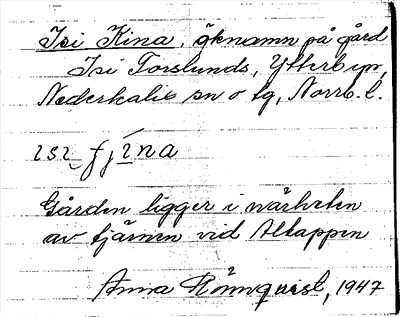 Isi Kina, öknamn på gård
Isi Torslunds, Ytterbyn,
Nederkalix sn o tg, Norrb. l.
ɪsɪ fjína
Gården ligger i närheten
av tjärnen vid Altappen
Anna Rönnquist, 1947